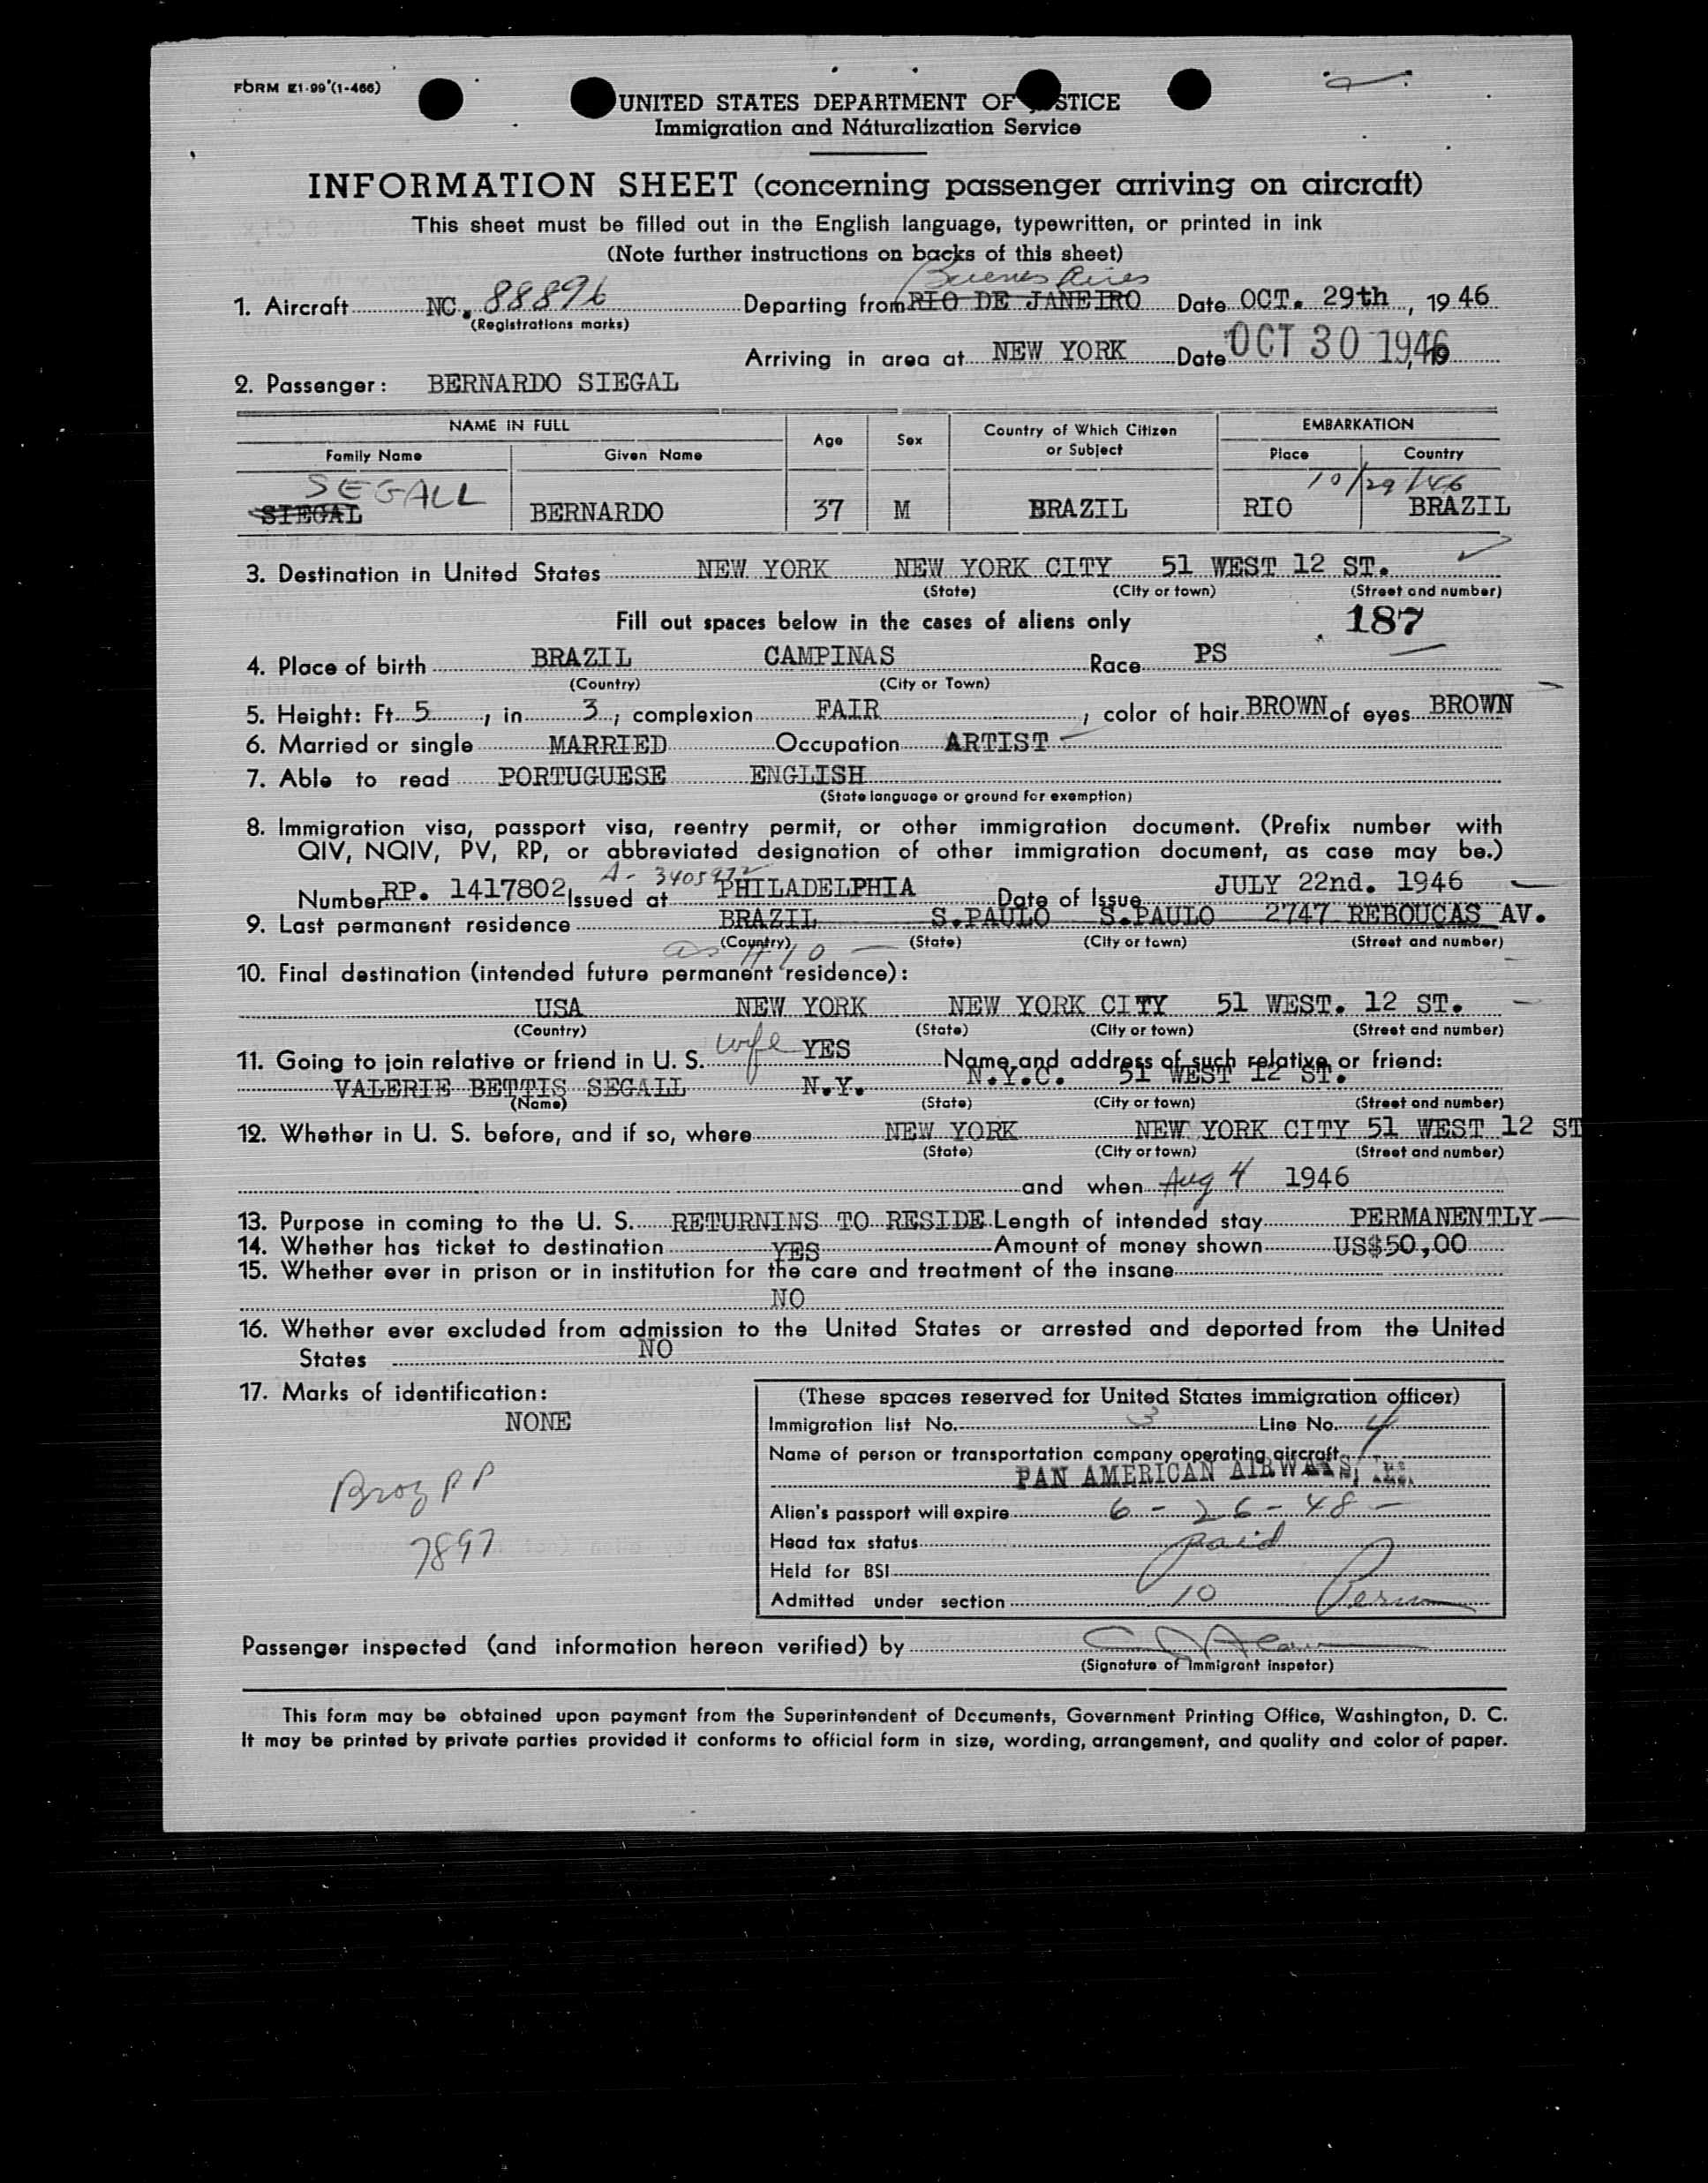 FORM I-99 (1-466)
UNITED STATES DEPARTMENT OF STICE
Immigration and Naturalization Service
INFORMATION SHEET (concerning passenger arriving on aircraft)
This sheet must be filled out in the English language, typewritten, or printed in ink
(Note further instructions on backs of this sheet)
Buenos Aires
1. Aircraft NC. 88896 Departing from RIO DE JANEIRO Date OCT. 29th, 19 46
(Registrations marks)
Arriving in area at NEW YORK Date OCT 30 1946
2. Passenger: BERNARDO SIEGAL
NAME IN FULL Age Sex Country of Which Citizen or Subject EMBARKATION
Family Name Given Name Place Country
SEGALL 10/29/46
SIEGAL BERNARDO 37 M BRAZIL RIO BRAZIL
3. Destination in United States NEW YORK NEW YORK CITY 51 WEST 12 ST.
(State) (City or town) (Street and number)
Fill out spaces below in the cases of aliens only 187
4. Place of birth BRAZIL CAMPINAS Race PS
(Country) (City or Town)
5. Height: Ft. 5, in 3, complexion FAIR, color of hair BROWN of eyes BROWN
6. Married or single MARRIED Occupation ARTIST
7. Able to read PORTUGUESE ENGLISH
(State language or ground for exemption)
8. Immigration visa, passport visa, reentry permit, or other immigration document. (Prefix number with
QIV, NQIV, PV, RP, or abbreviated designation of other immigration document, as case may be.)
A- 3405972
Number RP. 1417802 Issued at PHILADELPHIA Date of Issue JULY 22nd. 1946
9. Last permanent residence BRAZIL S.PAULO S.PAULO 2747 REBOUCAS AV.
(Country) (State) (City or town) (Street and number)
as # 10
10. Final destination (intended future permanent residence):
USA NEW YORK NEW YORK CITY 51 WEST. 12 ST.
(Country) (State) (City or town) (Street and number)
11. Going to join relative or friend in U. S. wife YES Name and address of such relative or friend:
VALERIE BETTIS SEGALL N.Y. N.Y.C. 51 WEST 12 ST.
(Name) (State) (City or town) (Street and number)
12. Whether in U. S. before, and if so, where NEW YORK NEW YORK CITY 51 WEST 12 ST
(State) (City or town) (Street and number)
and when Aug 4 1946
13. Purpose in coming to the U. S. RETURNINS TO RESIDE Length of intended stay PERMANENTLY
14. Whether has ticket to destination YES Amount of money shown US$50,00
15. Whether ever in prison or in institution for the care and treatment of the insane
NO
16. Whether ever excluded from admission to the United States or arrested and deported from the United
States NO
17. Marks of identification:
NONE
Braz PP
7897
(These spaces reserved for United States immigration officer)
Immigration list No. 3 Line No. 4
Name of person or transportation company operating aircraft
PAN AMERICAN AIRWAYS, Inc.
Alien's passport will expire 6-26-48-
Head tax status paid
Held for BSI
Admitted under section 10 Perm
Passenger inspected (and information hereon verified) by
(Signature of Immigrant inspetor)
This form may be obtained upon payment from the Superintendent of Documents, Government Printing Office, Washington, D. C.
It may be printed by private parties provided it conforms to official form in size, wording, arrangement, and quality and color of paper.